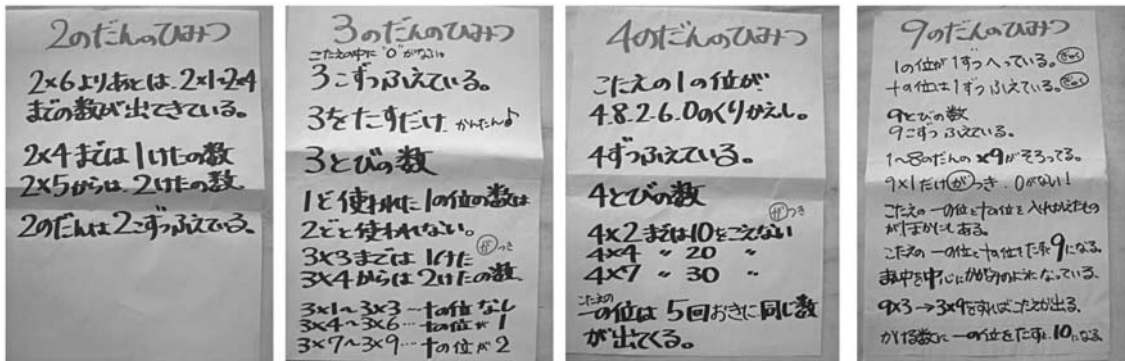 2のだんのひみつ
2×6よりあとは、2×1~2×4
までの数が出てきている。
2×4までは1けたの数
2×5からは、2けたの数。
2のだんは2こずつふえている。
3のだんのひみつ
こたえの中に"0"がない。
3こずつふえている。
3をたすだけ かんたん♪
3とびの数
1ど使われた1の位の数は
2どと使われない。
がつき
3×3までは1けた
3×4からは2けたの数。
3×1~3×3…十の位なし
3×4~3×6…十の位が1
3×7~3×9…十の位が2
4のだんのひみつ
こたえの1の位が
4.8.2.6.0のくりかえし。
4ずつふえている。
4とびの数
がつき
4×2までは10をこえない
4×4 〃 20 〃
4×7 〃 30 〃
こたえの
一の位は5回おきに同じ数
が出てくる。
9のだんのひみつ
1の位が1ずつへっている。ぎゃく
十の位は1ずつふえている。ぎゃく
9とびの数
9こずつふえている。
1~8のだんの×9がそろってる。
9×1だけがつき.0がない!
こたえの一の位と十の位を入れかえたもの
がほかにもある。
こたえの一の位と十の位をたすと9になる。
まん中を中心にかがみのようになっている、
9×3→3×9をすればこたえが出る、
かける数に一の位をたすと10になる